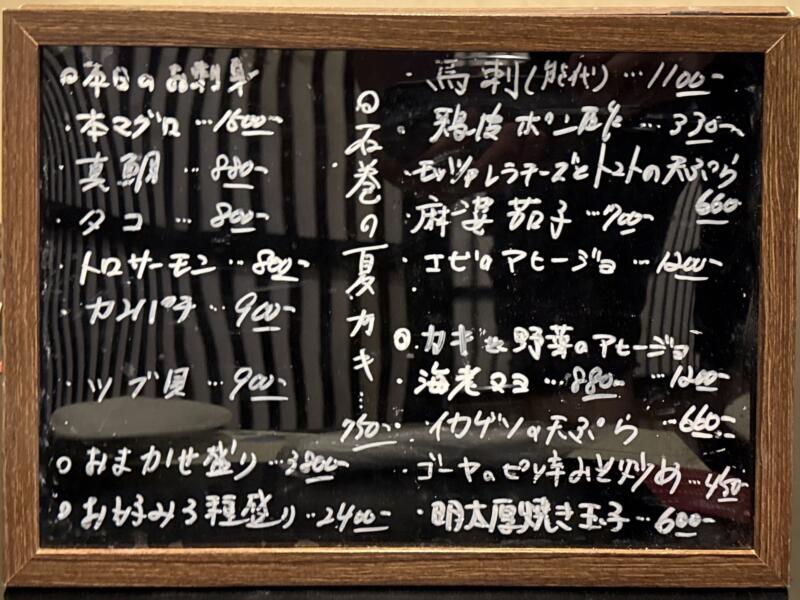 本日のお刺身
・本マグロ…1500-
・真鯛…880-
・タコ…800-
・トロサーモン…800-
・カンパチ…900-
・ツブ貝…900-
○おまかせ盛り…3800-
○お好み3種盛り…2400-
○石巻の夏カキ…
750-
・馬刺(能代)…1100-
・鶏皮ポン酢…330-
・モッツァレラチーズとトマトの天ぷら
660-
・麻婆茄子…700-
・エビのアヒージョ…1200-
○カキと野菜のアヒージョ
…1200-
・海老マヨ…880-
・イカゲソの天ぷら…660-
・ゴーヤのピリ辛みそ炒め…450-
・明太厚焼き玉子…600-